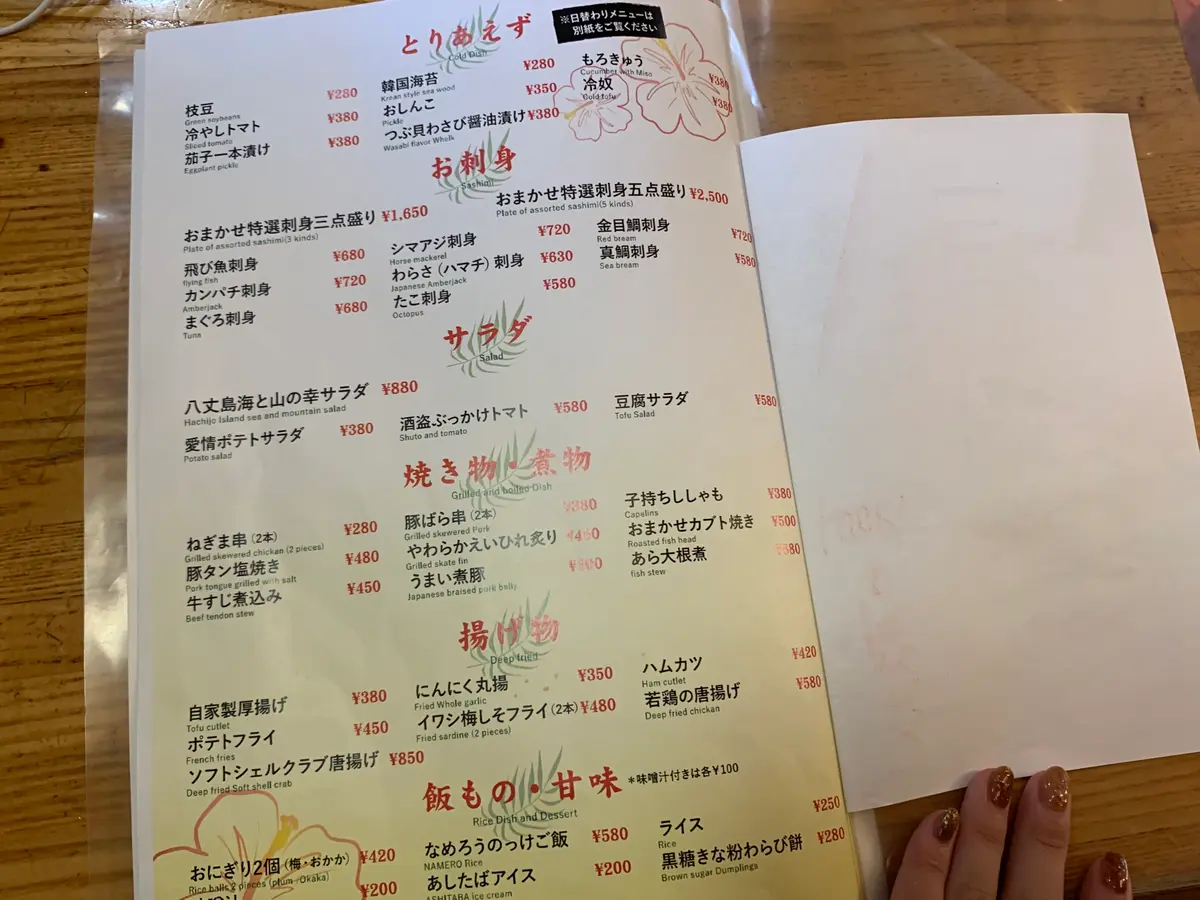 とりあえず
Cold Dish
※日替わりメニューは
別紙をご覧ください
枝豆 ¥280
Green soybeans
冷やしトマト ¥380
Sliced tomato
茄子一本漬け ¥380
Eggplant pickle
韓国海苔 ¥280
Krean style sea wood
おしんこ ¥350
Pickle
つぶ貝わさび醤油漬け ¥380
Wasabi flavor Whelk
もろきゅう ¥380
Cucumber with Miso
冷奴 ¥380
Cold tofu
お刺身
Sashimi
おまかせ特選刺身三点盛り ¥1,650
Plate of assorted sashimi(3 kinds)
おまかせ特選刺身五点盛り ¥2,500
Plate of assorted sashimi(5 kinds)
飛び魚刺身 ¥680
flying fish
カンパチ刺身 ¥720
Amberjack
まぐろ刺身 ¥680
Tuna
シマアジ刺身 ¥720
Horse mackerel
わらさ（ハマチ）刺身 ¥630
Japanese Amberjack
たこ刺身 ¥580
Octopus
金目鯛刺身 ¥720
Red bream
真鯛刺身 ¥580
Sea bream
サラダ
Salad
八丈島海と山の幸サラダ ¥880
Hachijo Island sea and mountain salad
愛情ポテトサラダ ¥380
Potato salad
酒盗ぶっかけトマト ¥580
Shuto and tomato
豆腐サラダ ¥580
Tofu Salad
焼き物・煮物
Grilled and boiled Dish
ねぎま串（2本） ¥280
Grilled skewered chicken (2 pieces)
豚タン塩焼き ¥480
Pork tongue grilled with salt
牛すじ煮込み ¥450
Beef tendon stew
豚ばら串（2本） ¥380
Grilled skewered Pork
やわらかえいひれ炙り
Grilled skate fin
うまい煮豚
Japanese braised pork belly
子持ちししゃも ¥380
Capelins
おまかせカブト焼き ¥500
Roasted fish head
あら大根煮
fish stew
揚げ物
Deep fried
自家製厚揚げ ¥380
Tofu cutlet
ポテトフライ ¥450
French fries
ソフトシェルクラブ唐揚げ ¥850
Deep fried Soft shell crab
にんにく丸揚 ¥350
Fried Whole garlic
イワシ梅しそフライ（2本） ¥480
Fried sardine (2 pieces)
ハムカツ ¥420
Ham cutlet
若鶏の唐揚げ ¥580
Deep fried chickan
飯もの・甘味 *味噌汁付きは各¥100
Rice Dish and Dessert
おにぎり2個（梅・おかか） ¥420
Rice balls 2 pieces (plum・Okaka)
¥200
なめろうのっけご飯 ¥580
NAMERO Rice
あしたばアイス ¥200
ASHITABA ice cream
ライス ¥250
Rice
黒糖きな粉わらび餅 ¥280
Brown sugar Dumplings